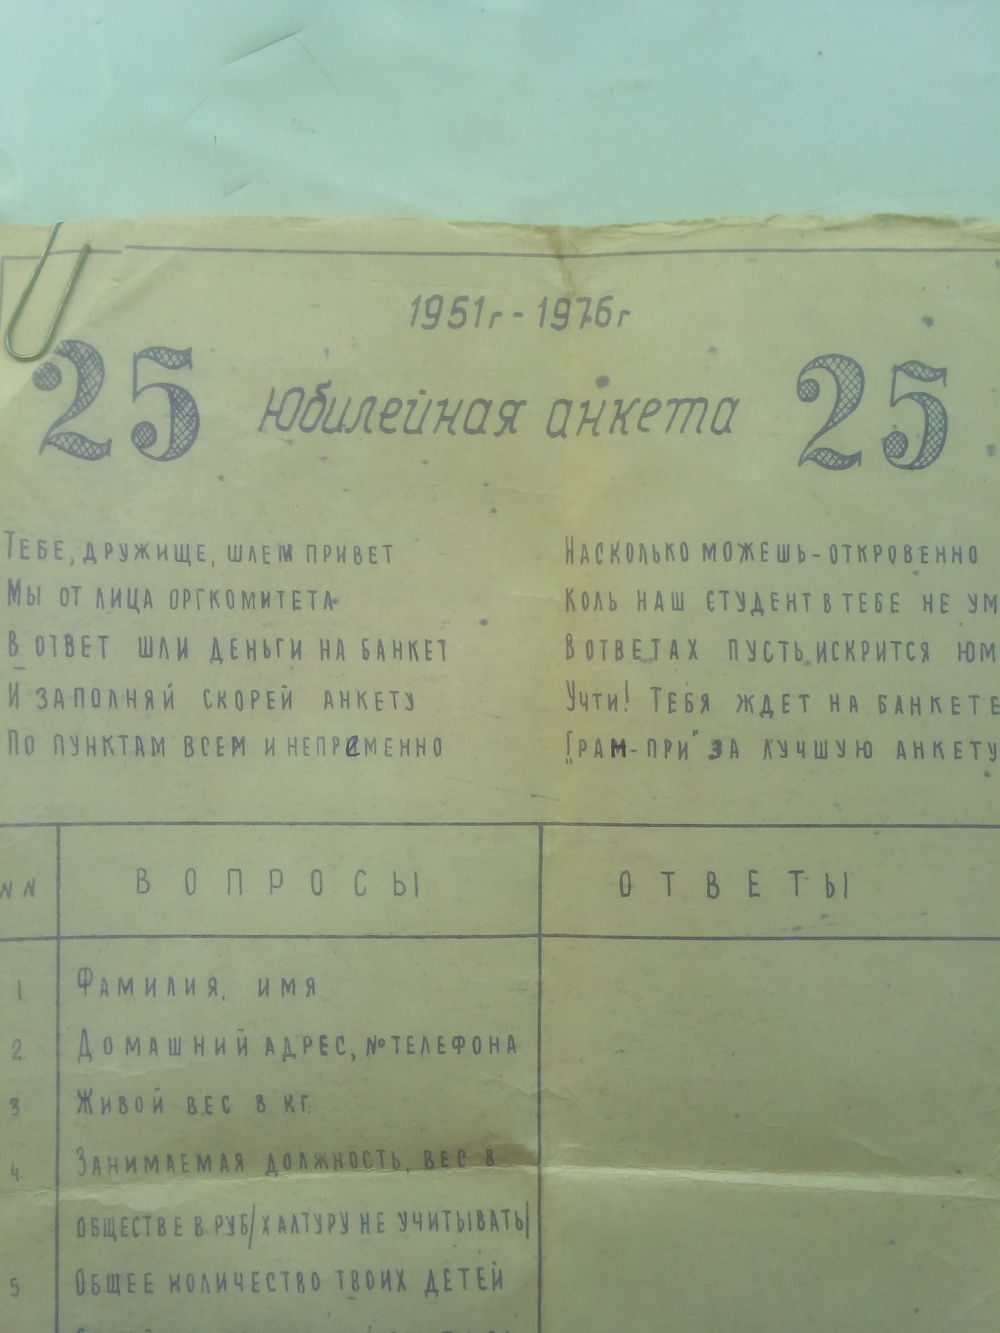 1951г - 1976г
25 Юбилейная анкета 25
Тебе, дружище, шлем привет
Мы от лица оргкомитета
В ответ шли деньги на банкет
И заполняй скорей анкету
По пунктам всем и непременно
Насколько можешь-откровенно
Коль наш студент в тебе не ум
В ответах пусть искрится юм
Учти! Тебя ждет на банкете
„Грам-при" за лучшую анкету
NN ВОПРОСЫ ОТВЕТЫ
1 Фамилия, имя
2. Домашний адрес, № телефона
3 Живой вес в кг.
4. Занимаемая должность, вес в
обществе в руб/халтуру не учитывать/
5 Общее количество твоих детей